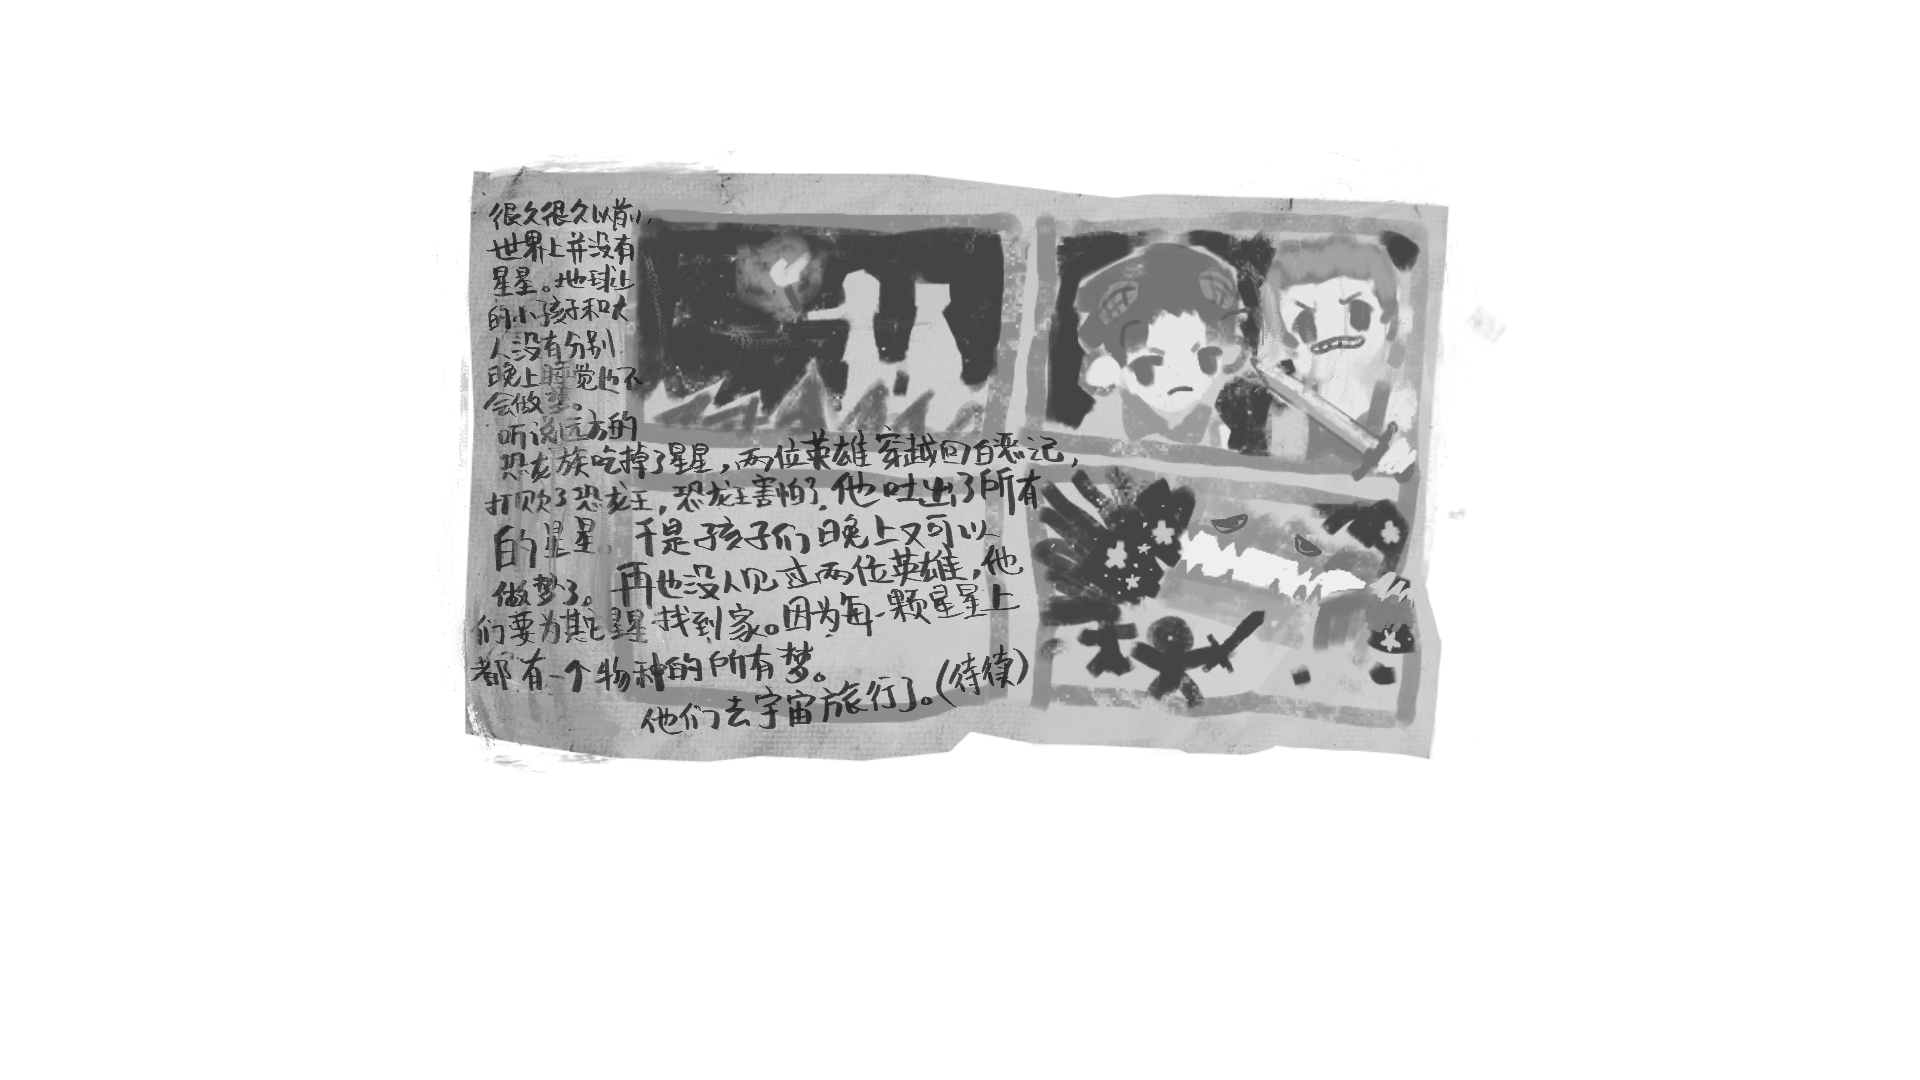 很久很久以前，
世界上并没有
星星。地球上
的小孩子和大
人没有分别
晚上睡觉也不
会做梦。
听说远方的
恐龙族吃掉了星星，两位英雄穿越回白垩记，
打败了恐龙王，恐龙王害怕了，他吐出了所有
的星星。于是孩子们晚上又可以
做梦了。再也没人见过两位英雄，他
们要为其它星星找到家。因为每一颗星星上
都有一个物种的所有梦。
他们去宇宙旅行了。（待续）